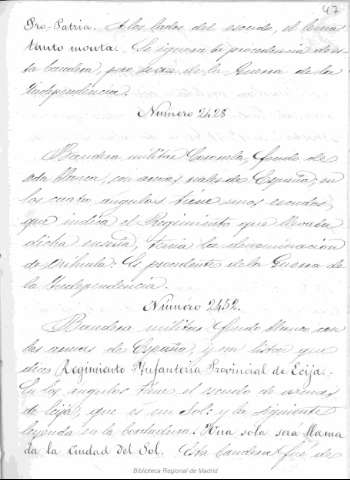 47
Pro Patria. A los lados del escudo, el lema
tanto monta. Se ignora la procedencia de es-
ta bandera, pero se cree de la Guerra de la
Independencia.
Número 2428
Bandera militar Coronela, fondo de
seda blanca, con armas reales de España, en
los cuatro angulos tiene unos escudos
que indica el Regimiento que llevaba
dicha enseña, tenia la denominacion
de Orihuela. Es procedente de la Guerra de
la Independencia.
Número 2452.
Bandera militar fondo blanco con
las armas de España, y un liston que
dice: Regimiento Ynfantería Provincial de Ecija.
En los angulos tiene el escudo de armas
de Ecija, que es un Sol: y la siguiente
leyenda en la bordadura: Una sola será llama
da la Ciudad del Sol. Esta bandera fué de
Biblioteca Regional de Madrid